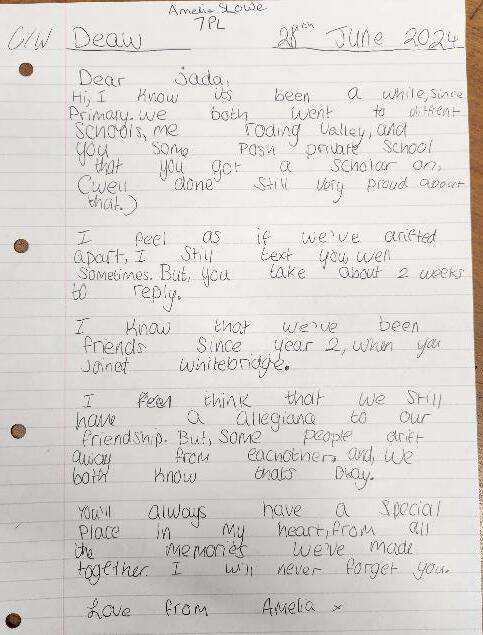 Amelia Slowe
7PL
C/W Deaw 28th June 2024
Dear Jada,
Hi, I know its been a while, since
Primary. we both went to diffrent
Schools, me Roding Valley, and
you some Posh private School
that you got a Scholar on,
(well done Still very proud about
that.)
I feel as if we've drifted
apart, I Still text you, well
Sometimes. But, you take about 2 weeks
to reply.
I know that we've been
friends Since year 2, when you
Joined Whitebridge.
I feel think that we Still
have a allegiane to our
friendship. But, Some people drift
away from eachother, and, we
both know thats Okay.
You'll always have a Special
Place in my heart, from all
the memories we've made
together. I will never forget you.
Love from Amelia x